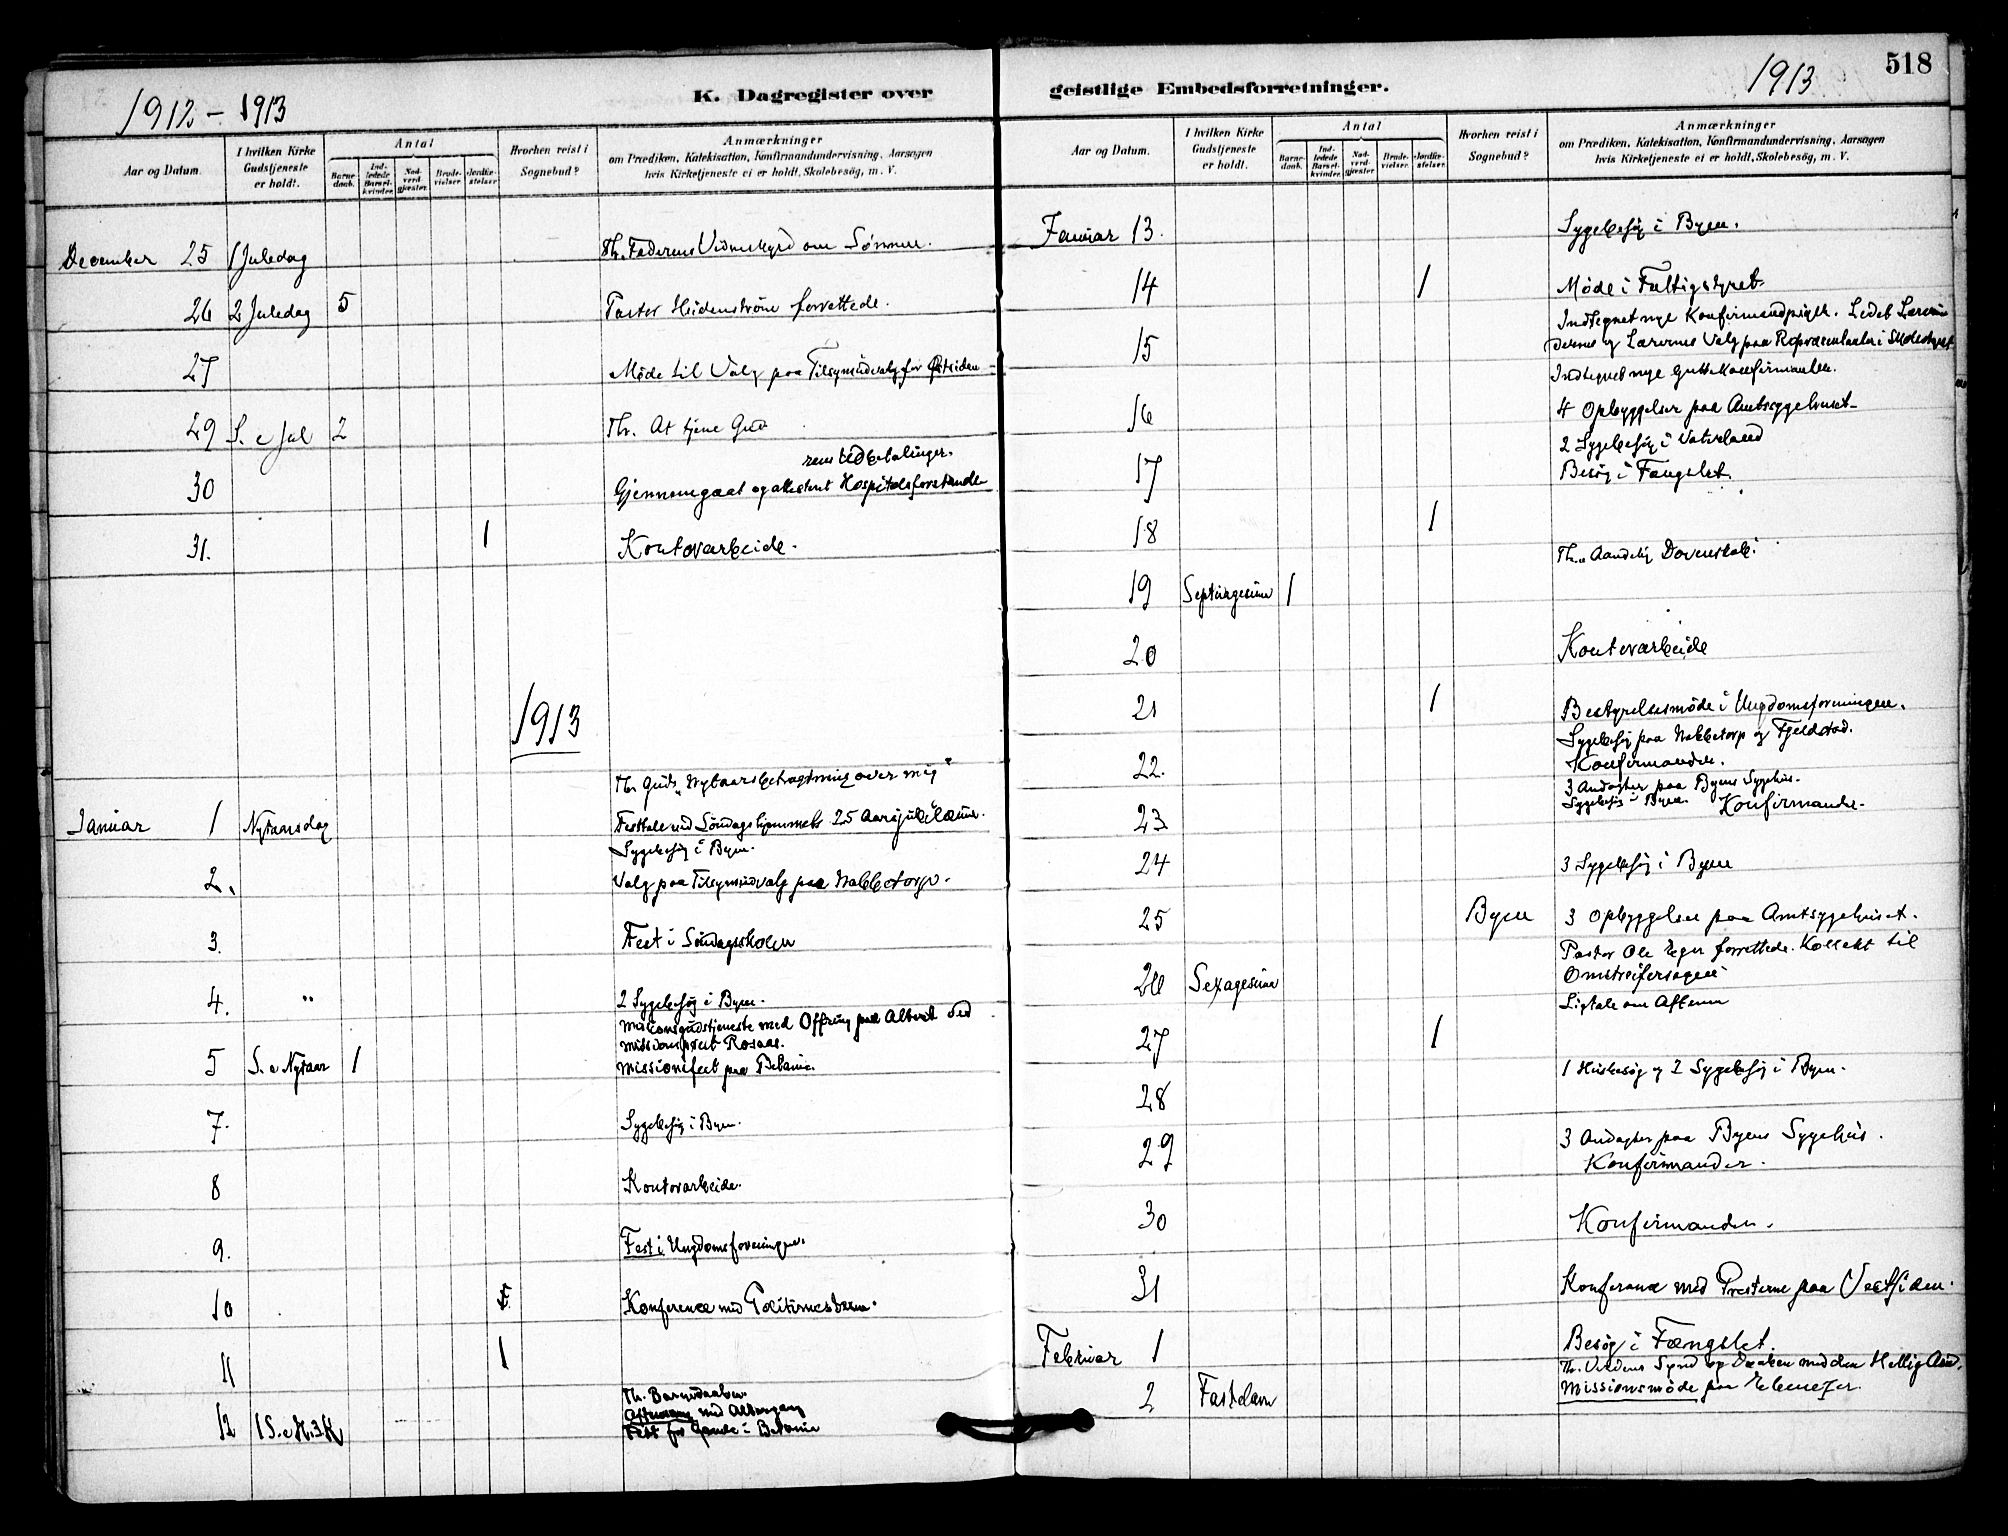 1912 - 1913
K. Dagregister over
Aar og Datum.
I hvilken Kirke Gudstjeneste er holdt.
Antal
Barnedaab.
Indledede Barselkvinder.
Nadverdgjæster.
Brudevielser.
Jordfæstelser.
Hvorhen reist i Sognebud?
Anmærkninger
om Prædiken, Katekisation, Konfirmandundervisning, Aarsagen
hvis Kirketjeneste ei er holdt, Skolebesög, m. V.
December 25 1 Juledag Th. Faderens Vidnesbyrd om Sønnen.
26 2 Juledag 5 Pastor Heidenstrøm forrettede.
27 Møde til Valg paa Tilsynsudvalg for Østsiden
29 S. e Jul 2 Th. At tjene Gud
rens Udbetalinger.
30 Gjennemgaat og attesteret Hospitalsforstande
31. 1 Kontorarbeide.
1913
Th. Guds "Nytaarsbetragtning over mig"
Januar 1 Nytaarsdag Festtale ved Søndagshjemmets 25 Aarsjubilæum.
Sygebesøg i Byen.
2. Valg paa Tilsynsudvalg paa Nabbetorp.
3. Fest i Søndagsskolen
4. " 2 Sygebesøg i Byen.
Missionsgudstjeneste med Offring paa Alteret ved
Missionsprest Rosaas.
5 S. e Nytaar 1 Missionsfest paa Betania.
7. Sygebesøg i Byen.
8 Kontorarbeide.
9. Fest i Ungdomsforeningen.
10 Konference med Politimesteren.
11 1
Th. Barnedaaben.
Aftensang med Altergang
12 1 S. e H.3.K Fest for Gamle i Betania
1913
518
geistlige Embedsforretninger.
Aar og Datum.
I hvilken Kirke Gudstjeneste er holdt.
Antal
Barnedaab.
Indledede Barselkvinder.
Nadverdgjæster.
Brudevielser.
Jordfæstelser.
Hvorhen reist i Sognebud?
Anmærkninger
om Prædiken, Katekisation, Konfirmandundervisning, Aarsagen
hvis Kirketjeneste ei er holdt, Skolebesög, m. V.
Januar 13. Sygebesøg i Byen.
14 1 Møde i Fattigstyret
Indtegnet nye Konfirmandpiger. Ledet Lærerin
15 dernes og Lærernes Valg paa Repræsentanter i Skolestyret
Indtegnet nye Guttekonfirmanter.
16 4 Opbyggelser paa Amtssygehuset
2 Sygebesøg i Vaterland
17 Besøg i Fængslet.
18 1
Th. "Aandelig Dovenskab".
19 Septuagesima 1
20 Kontorarbeide
21 1 Bestyrelsesmøde i Ungdomsforeningen.
Sygebesøg paa Nabbetorp og Fjeldstad.
22. Konfirmander.
3 Andagter paa Byens Sygehus.
Sygebesøg i Byen. Konfirmander.
23
24 3 Sygebesøg i Byen
25 Byen 3 Opbyggelser paa Amtsygehuset.
Pastor Ole Eger forrettede. Kollekt til
26 Sexagesima Omstreifersagen
Ligtale om Aftenen
27 1
1 Husbesøg og 2 Sygebesøg i Byen.
28
29 3 Andagter paa Byens Sygehus.
Konfirmander.
30 Konfirmander.
31 Konferance med Presterne paa Vestsiden.
Februar 1 Besøg i Fængslet.
Th. Verdens Synd og Daaben med den Hellig Aand.
2 Fastelavn Missionsmøde paa Ebenezer.